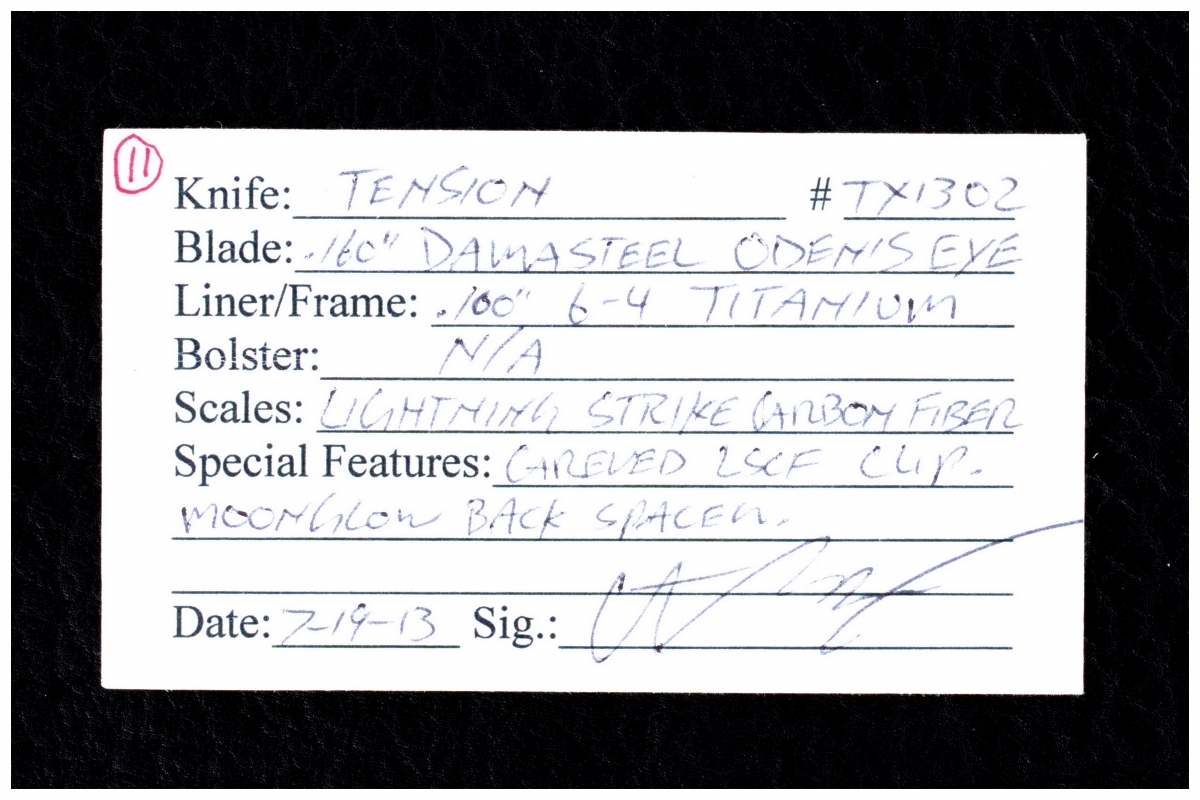 11
Knife: TENSION # TX1302
Blade: .160" DAMASTEEL ODENIS EYE
Liner/Frame: .100" 6-4 TITANIUM
Bolster: N/A
Scales: LIGHTNING STRIKE CARBON FIBER
Special Features: CAREVED LSCF CLIP.
MOONGLOW BACK SPACER.
Date: 7-19-13 Sig.: